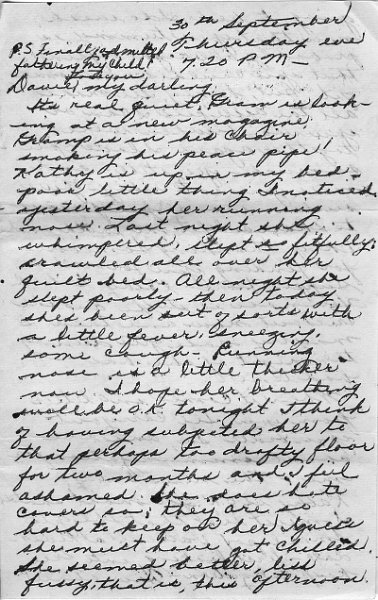 30th September
Thursday eve
7:20 P.M—
P.S. Finally admitted
fathering my child!
Love you
David my darling
Its real quiet. Gram is look-
ing at a new magazine.
Gramp is in his chair
smoking his peace pipe!
Kathy is up in my bed -
poor little thing I noticed
yesterday her running
nose. Last night she
whimpered, slept so fitfully
crawled all over her
quilt bed. All night she
slept poorly - then today
shes been out of sorts with
a little fever, sneezing,
some cough - Running
nose is a little thicker
now. I hope her breathing
will be O.K. tonight I think
of having subjected her to
that perhaps too drafty floor
for two months and feel
ashamed. She does hate
covers so; they are so
hard to keep on her I guess
she must have got chilled.
She seemed better, less
fussy, that is, this afternoon.